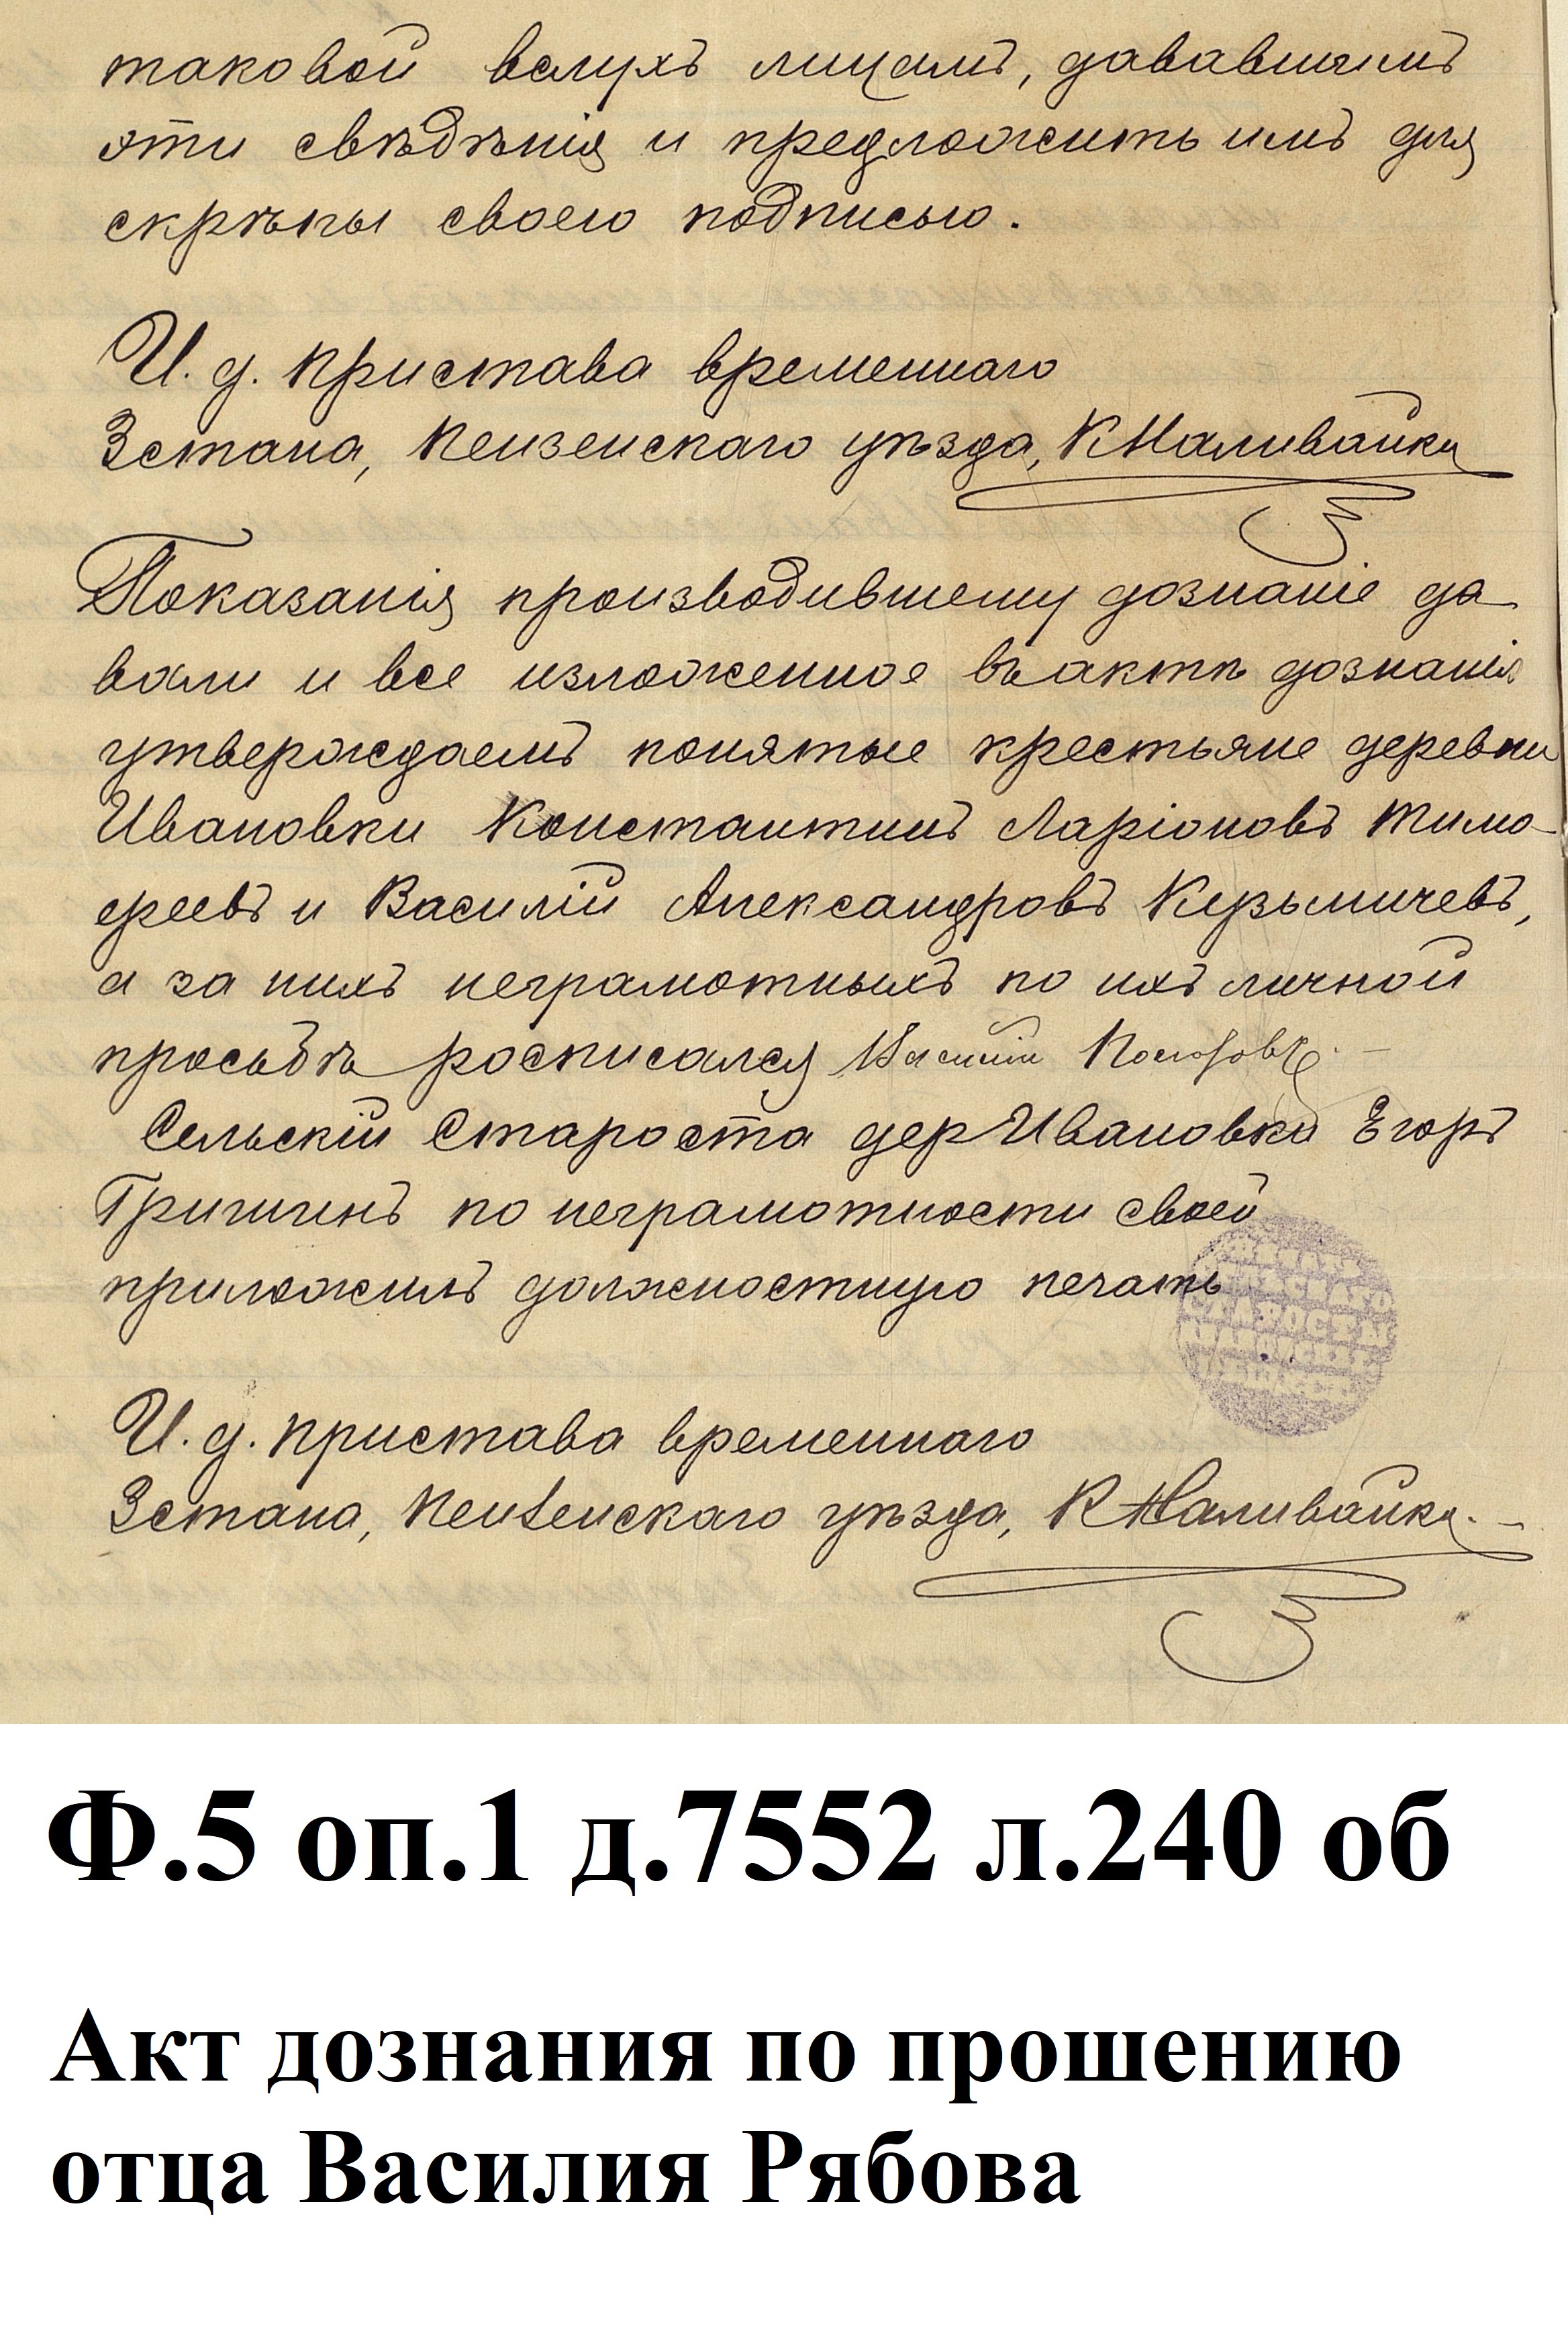 таковой вслухъ лицамъ, дававшимъ
эти свѣдѣнія и предложить имъ для
скрѣпы своею подписью.
И. д. Пристава временнаго
3 стана, Пензенскаго уѣзда, К Наливайко
Показанія производившему дознаніе да-
вали и все изложенное въ актѣ дознанія
утверждаемъ понятые крестьяне деревни
Ивановки Константинъ Ларіоновъ Тимо-
феевъ и Василій Александровъ Кузьмичевъ,
а за нихъ неграмотныхъ по ихъ личной
просьбѣ росписался Василій
Сельскій Староста дер Ивановки Егоръ
Гришинъ по неграмотности своей
приложилъ должностную печать
СТАРОСТЫ
И. д. Пристава временнаго
3 стана, Пензенскаго уѣзда, К Наливайко.
Ф.5 оп.1 д.7552 л.240 об
Акт дознания по прошению
отца Василия Рябова